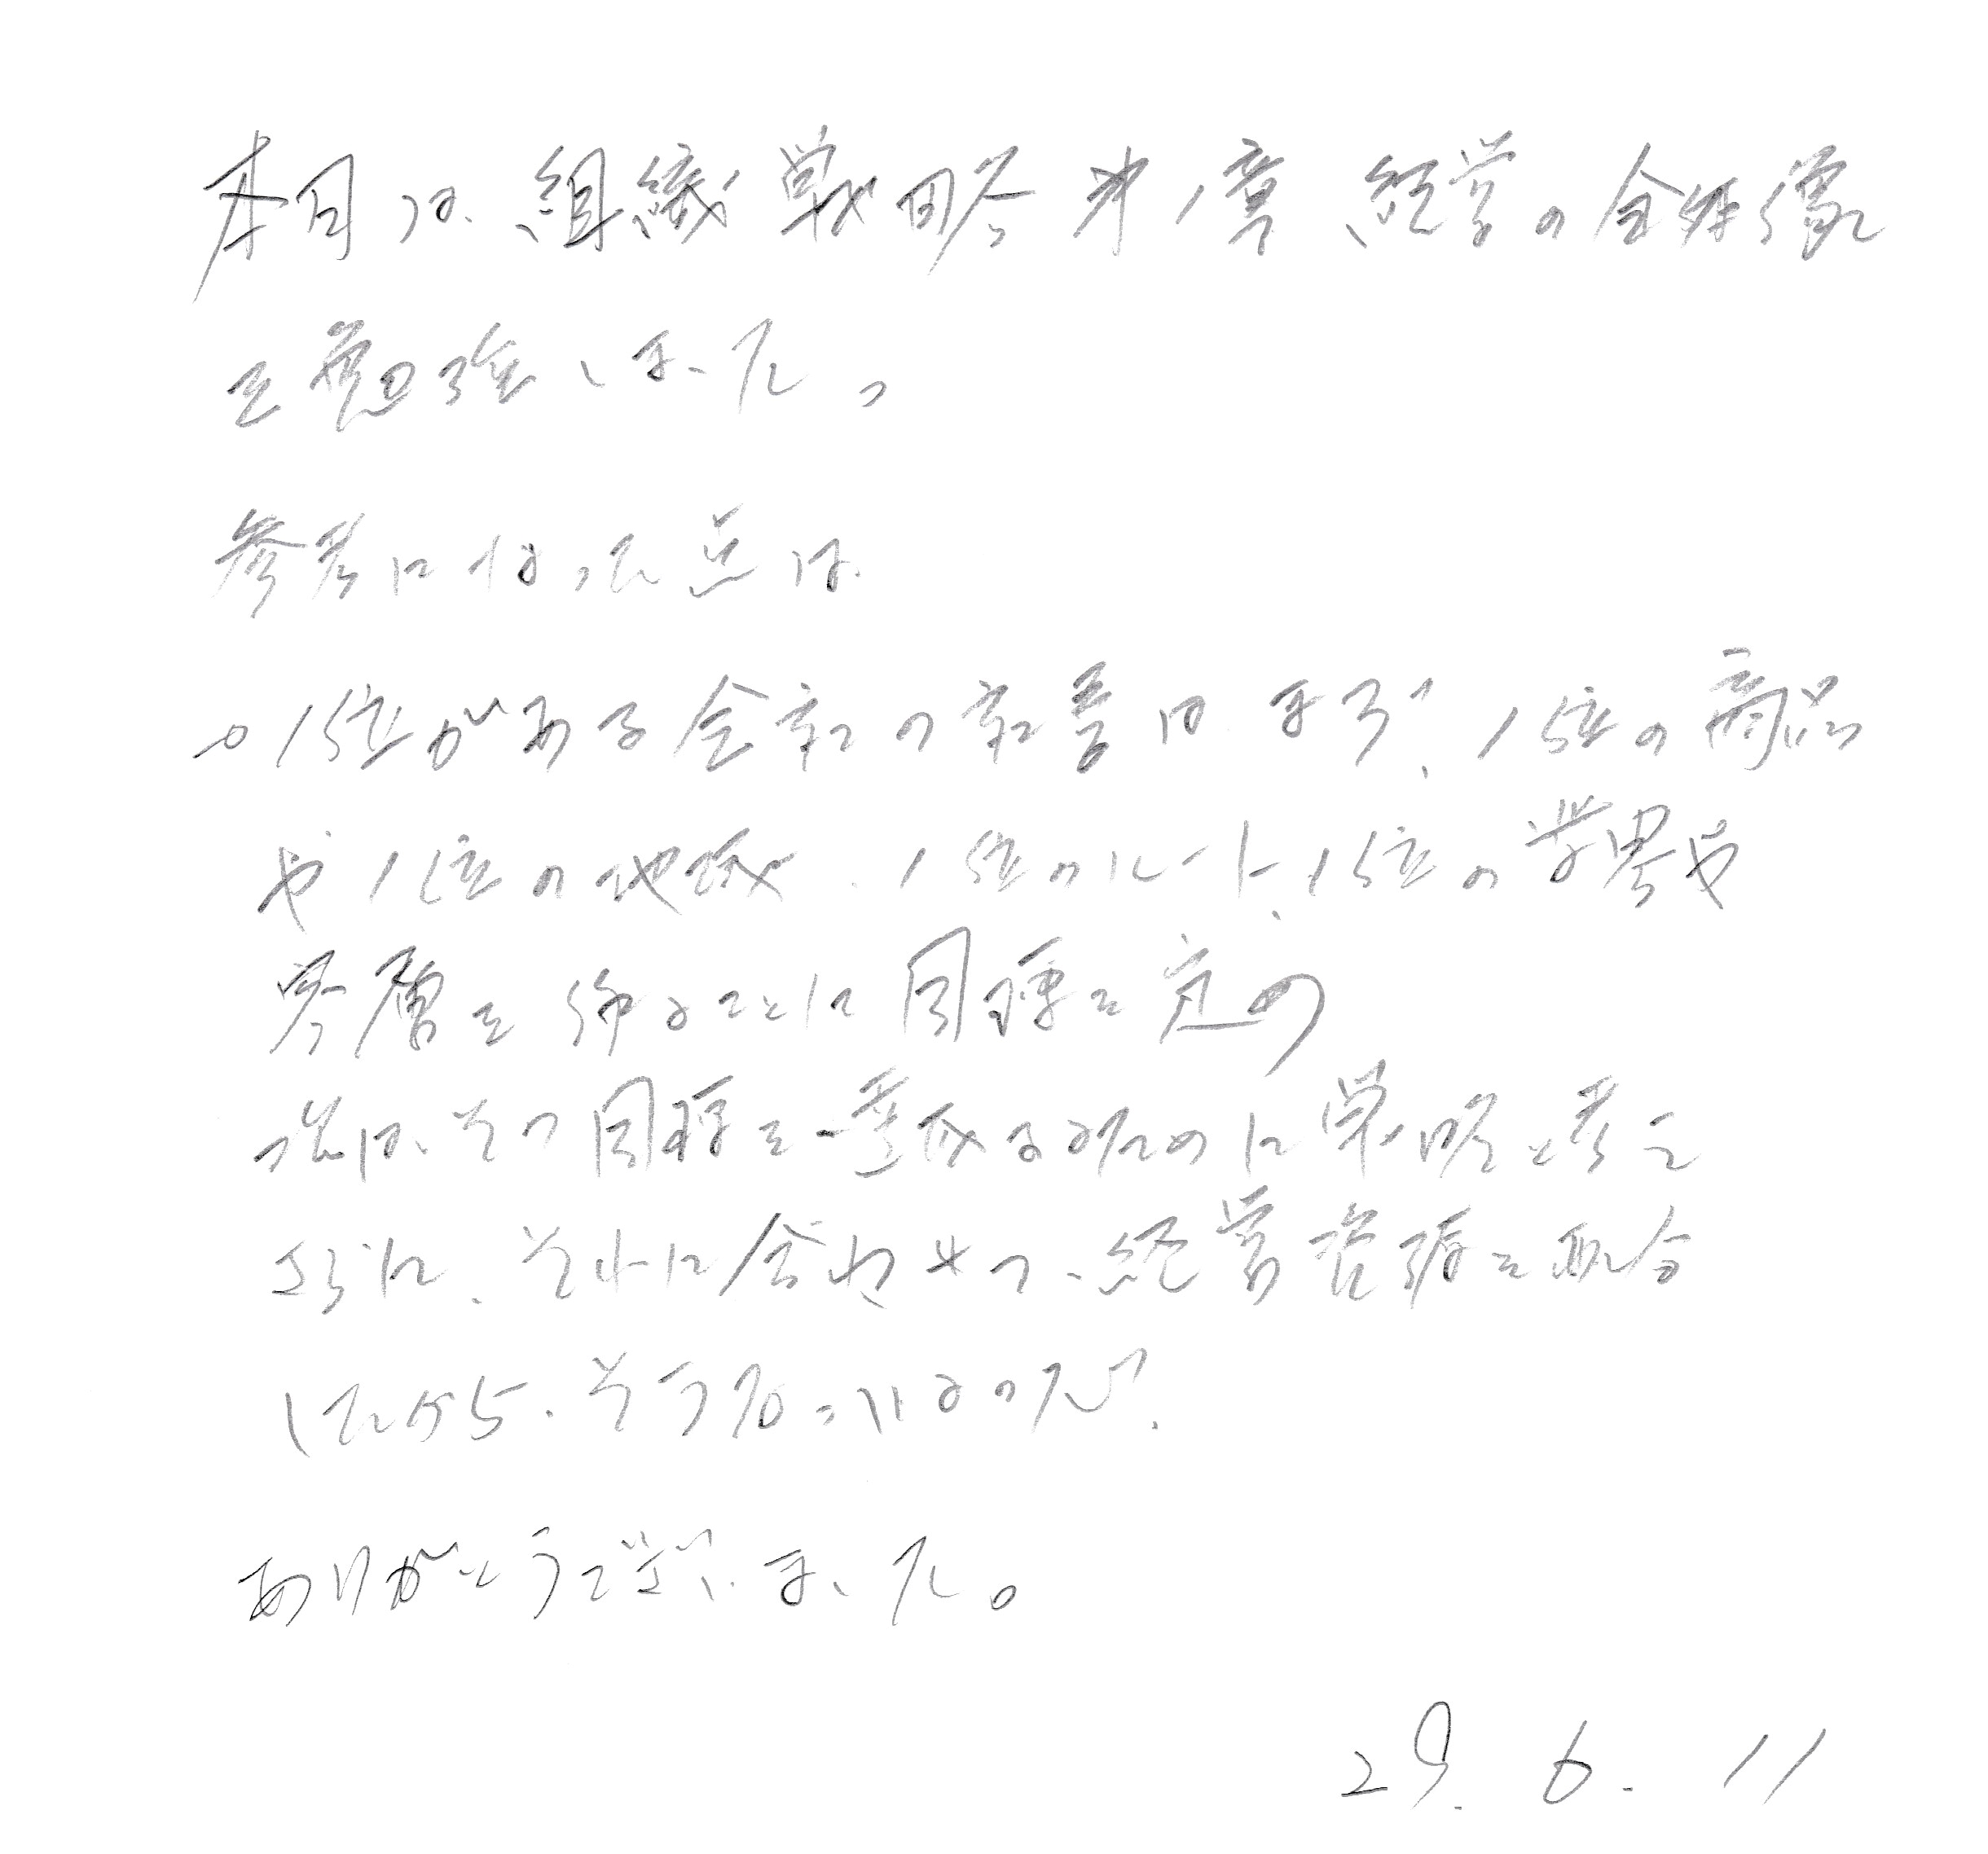 本日は、組織戦略第1章、経営の全体像
を勉強しました。
参考になった点は
○1位がある会社の社長は、まず、1位の商品
や1位の地域、1位のルート、1位の業界や
客層を作ることに目標を定め
次は、その目標を達成するために戦略を考え
さらに、それに合わせて、経営資源を配分
したから、そうなっ
ありがとうございました。
29. 6. 11